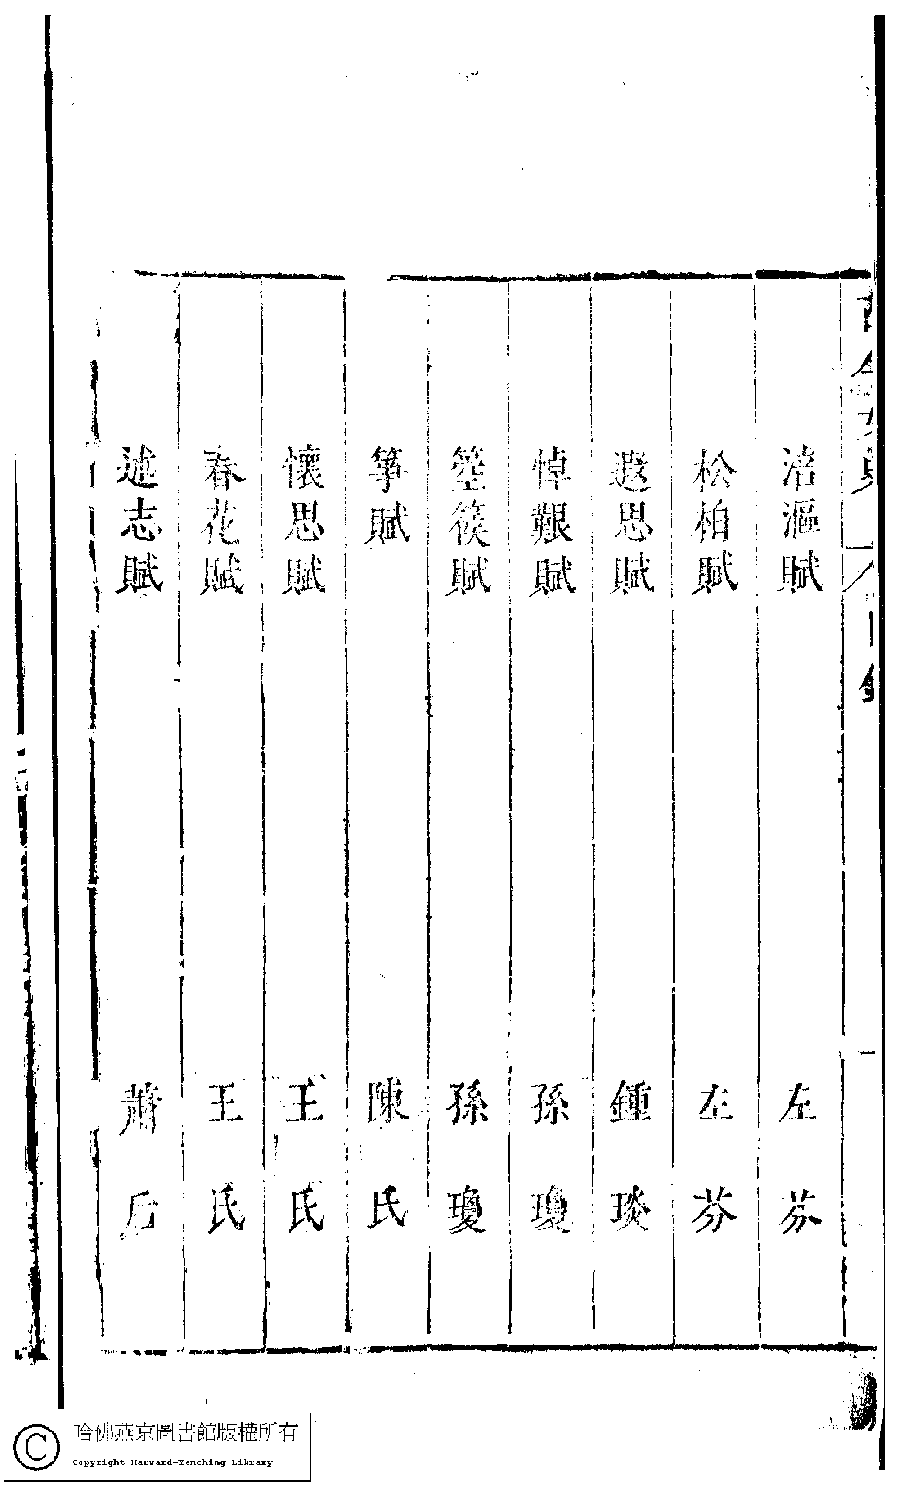 涪漚賦 左芬
松柏賦 左芬
遐思賦 鍾琰
悼艱賦 孫瓊
箜篌賦 孫瓊
箏賦 陳氏
懷思賦 王氏
春花賦 王氏
述志賦 蕭后
哈佛燕京圖書館版權所有
Copyright Harvard-Yenching Library